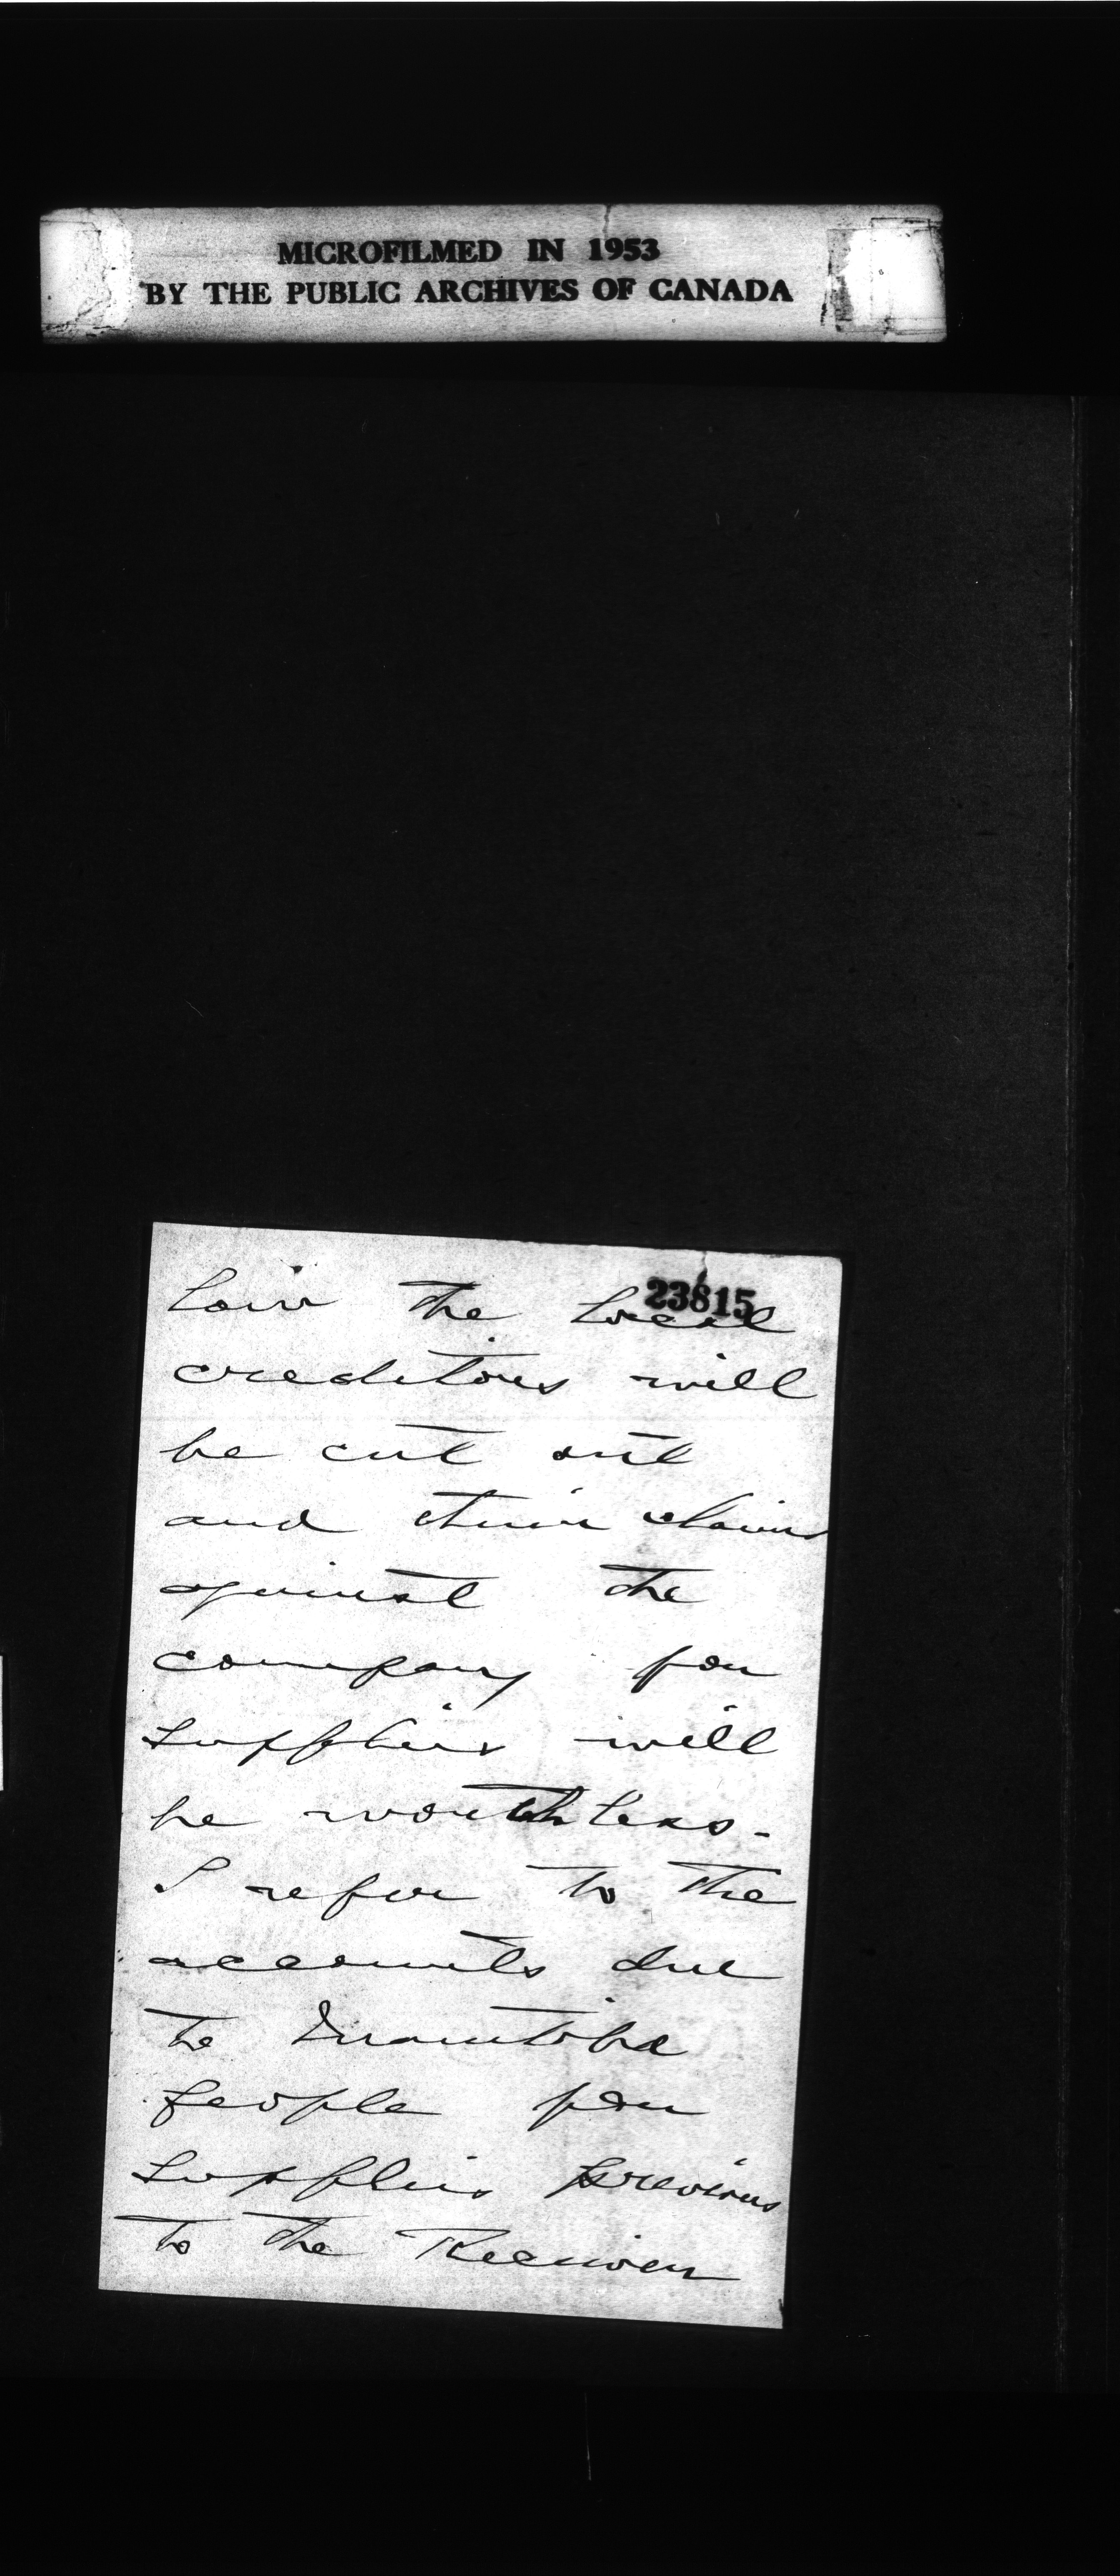 MICROFILMED IN 1953
BY THE PUBLIC ARCHIVES OF CANADA
23815
the local
creditors will
be cut out
and their claims
against the
company for
supplies will
be worthless.
I refer to the
accounts due
to Manitoba
people for
supplies previous
to the Receiver